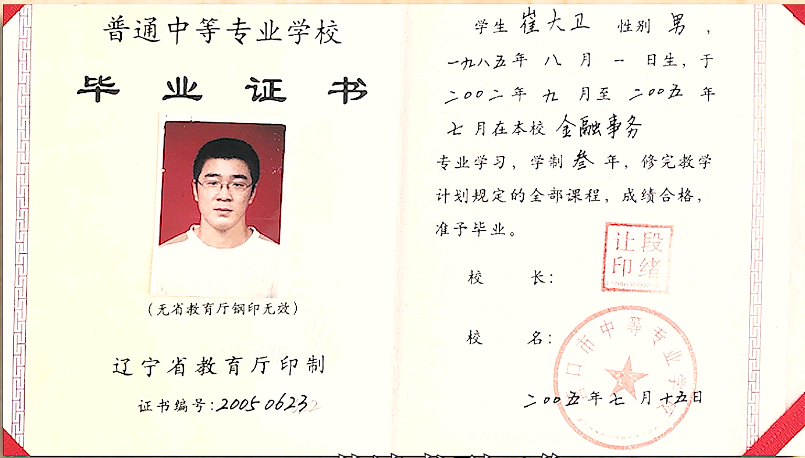 普通中等专业学校
毕业证书
(无省教育厅钢印无效)
辽宁省教育厅印制
证书编号:2005 0623
学生 崔大卫 性别 男,
一九八五年 八 月 一 日生,于
二〇〇二年 九 月至 二〇〇五 年
七 月在本校 金融事务
专业学习,学制 叁 年,修完教学
计划规定的全部课程,成绩合格,
准予毕业。
校 长:
让段
印绪
校 名:
口市中等专业学
二〇〇五年 七 月 十五日